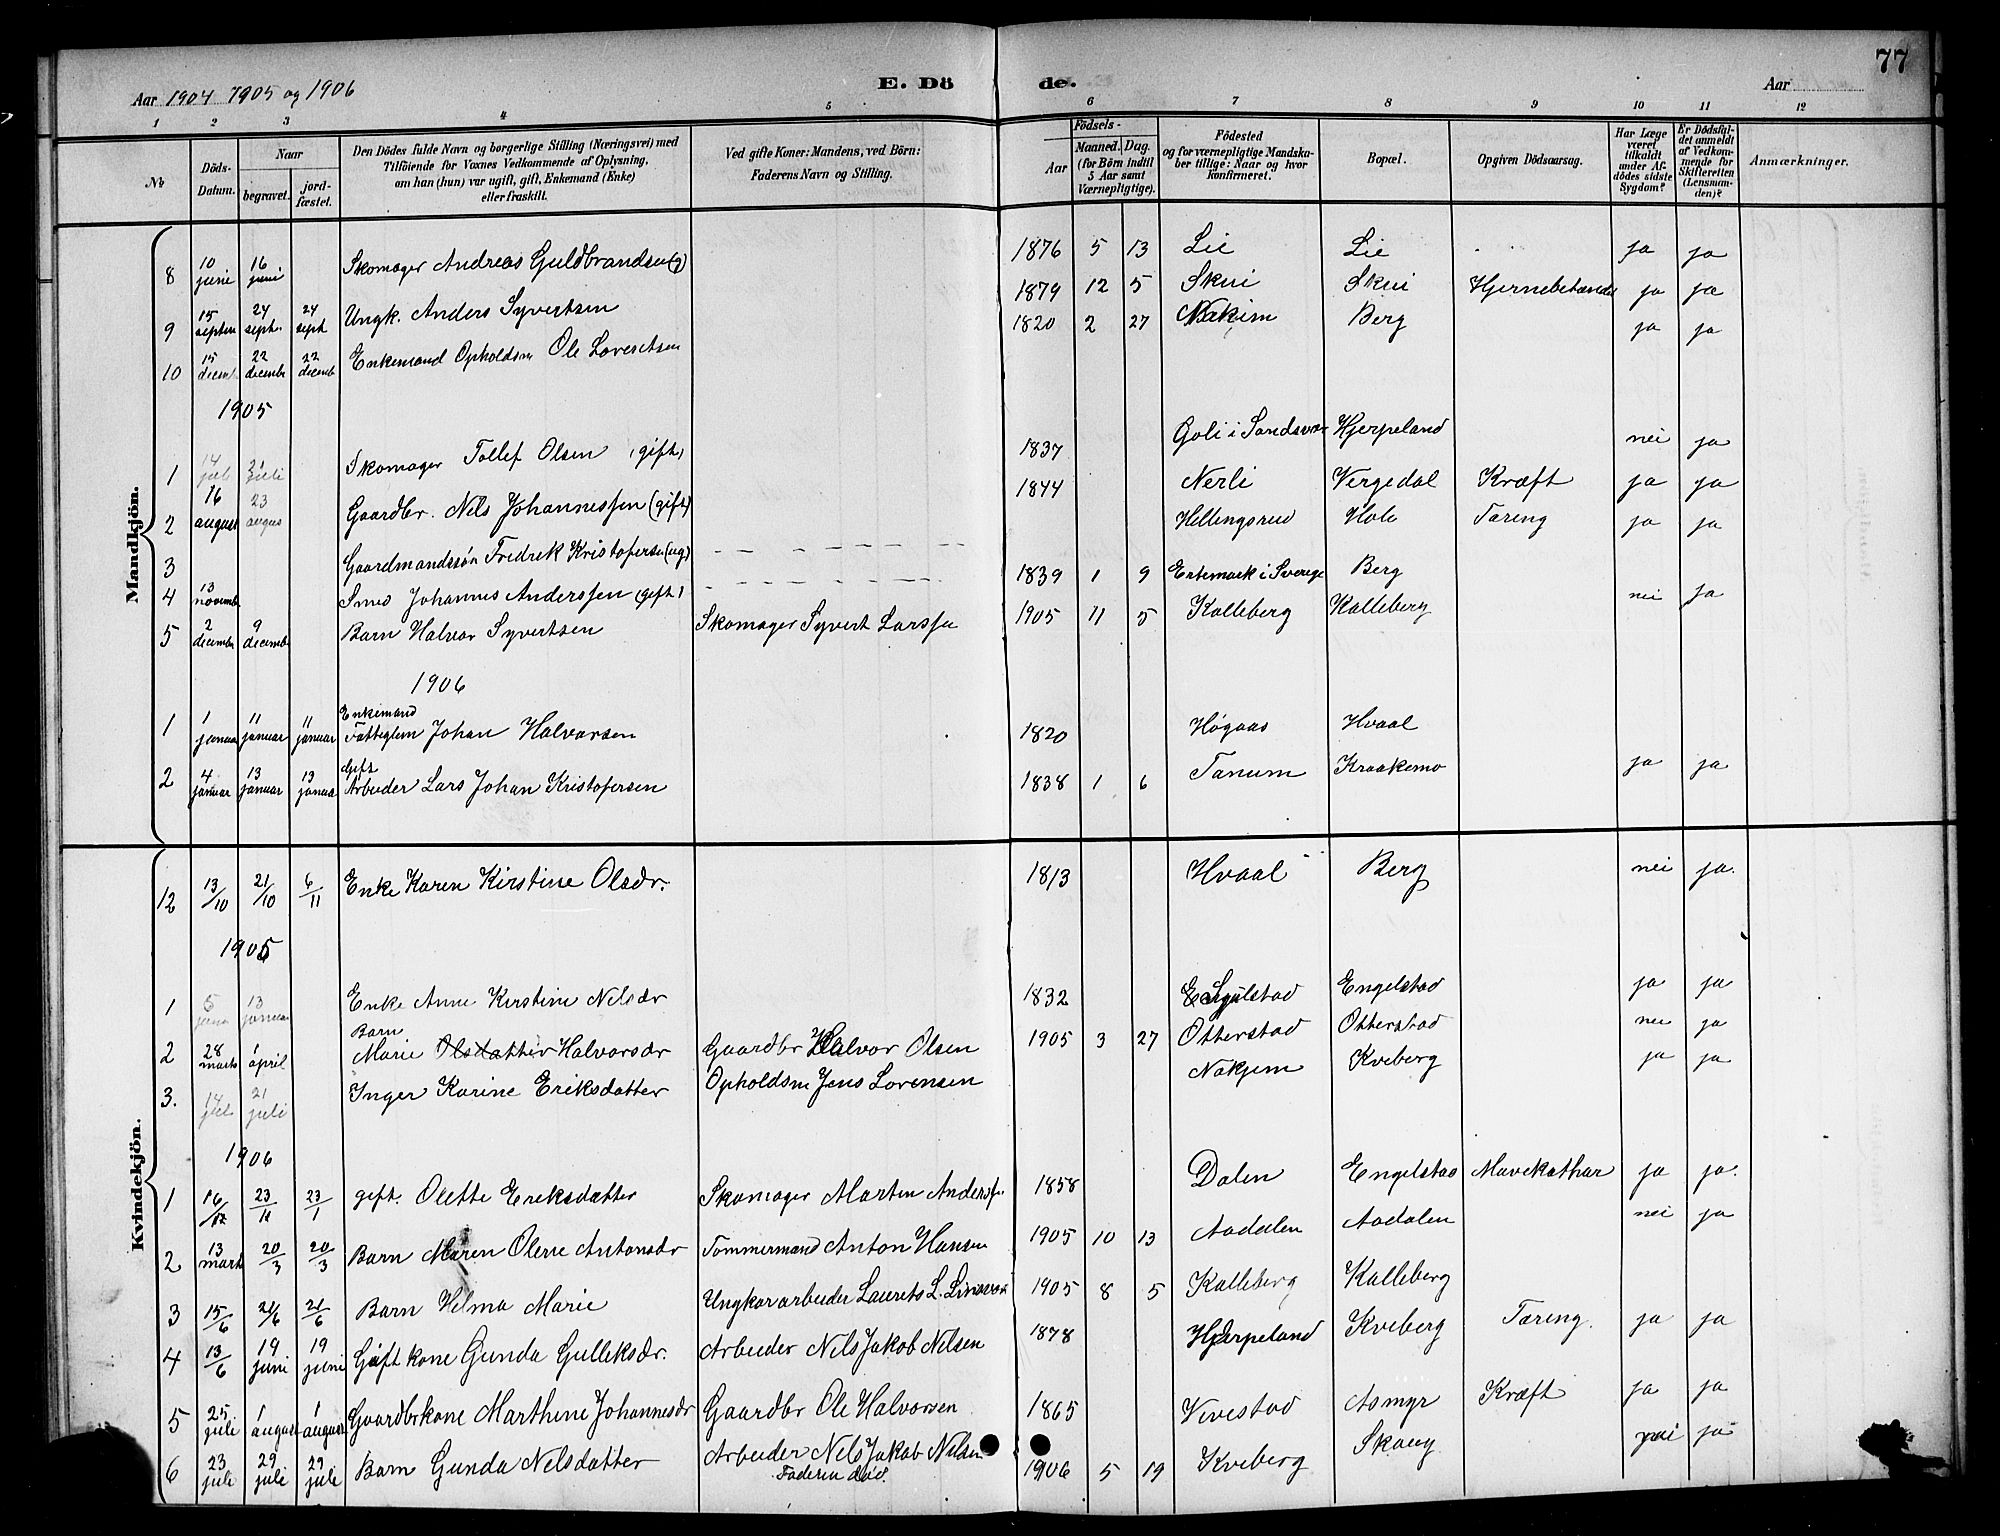 77
Aar 1904 1905 og 1906 E. Dö de. Aar
1 2 3 4 5 6 7 8 9 10 11 12
No
Döds-Datum.
Naar
begravet.
jord-fæstet.
Den Dödes fulde Navn og borgerlige Stilling (Næringsvei) med
Tilföiende for Voxnes Vedkommende af Oplysning,
om han (hun) var ugift, gift, Enkemand (Enke)
eller fraskilt.
Ved gifte Koner: Mandens, ved Börn:
Faderens Navn og Stilling.
Födsels-
Aar
Maaned. Dag.
(for Börn indtil
5 Aar samt
Værnepligtige).
Födested
og for værnepligtige Mandska-
ber tillige: Naar og hvor
konfirmeret.
Bopæl.
Opgiven Dödsaarsag.
Har Læge
været
tilkaldt
under Af-
dödes sidste
Sygdom?
Er Dödsfal-
det anmeldt
af Vedkom-
mende for
Skifteretten
(Lensman-
den)?
Anmærkninger.
Mandkjön.
8 10 juni 16 juni Skomager Andreas Guldbrandsen (g) 1876 5 13 Lie Lie ja ja
9 15 septem 24 sept. 24 sept Ungk. Anders Syvertsen 1879 12 5 Skui Skui Hjernebetændel ja ja
10 15 decemb 22 decembr 22 decemb Enkemand Opholdsm Ole Lorentsen 1820 2 27 Nakim Berg ja ja
1905
1 14 juli 21 juli Skomager Tollef Olsen (gift) 1837 Goli i Sandsvær Hjerpeland nei ja
2 16 august 23 augus Gaardbr. Nels Johannessen (gift) 1844 Nerli Vergedal Kræft ja ja
3 Gaardmandssøn Fredrek Kristofersen (ug) Hellingsrud Hole Tæring ja ja
4 13 novemb. Smed Johannes Anderssen (gift) 1839 1 9 Ertemark i Sverige Berg
5 2 decembr 9 decemb. Barn Halvor Syvertsen Skomager Syvert Larssen 1905 11 5 Kalleberg Kalleberg nei ja
1906
1 1 januar 11 januar 11 januar Enkemand
Fattiglem Johan Halvorsen 1820 Høgaas Hvaal
2 4 januar 13 januar 13 januar Gift
Arbeider Lars Johan Kristofersen 1838 1 6 Tanum Kraakemo ja ja
Kvindekjön.
12 13/10 21/10 6/11 Enke Karen Kirstine Olsdr. 1813 Hvaal Berg nei ja.
1905
1 5 januar 13 januar Enke Anne Kirstine Nelsdr 1832 Engelstad Engelstad ja ja
2 28 marts 1 april Barn
Marie Olsdatter Halvorsdr Gaardbr Halvor Olsen 1905 3 27 Otterstad Otterstad nei ja
3. 14 juli 21 juli Inger Karine Eriksdatter Opholdsm Jens Lorensen Nakjem Kveberg ja ja
1906
1 16/12 23/11 23/1 gift. Olette Eriksdatter Skomager Marten Anderss. 1858 Dalen Engelstad Mavekathar ja ja.
2 13 mart 20/3 20/3 Barn Maren Olene Antonsdr Tommermand Anton Hansen 1905 10 13 Aadalen Aadalen nei ja
3 15/6 21/6 21/6 Barn Helma Marie Ungkar arbeider Laurets L. 1905 8 5 Kalleberg Kalleberg
4 13/6 19 juni 19 juni Gift kone Gunda Gulleksdr. Arbeider Nels Jakob Nelsen 1878 Hjerpeland Kveberg Tæring. ja ja
5 25 juli 1 august 1 august Gaardbrkone Marthine Johannesdr Gaardbr Ole Halvorsen 1865 Vivestad Asmyr Kræft ja ja
6 23 juli 29 juli 29 juli Barn Gunda Nelsdatter Arbeider Nels Jakob Nilsen 1906 5 19 Kveberg Skaug nei ja
Faderen død.